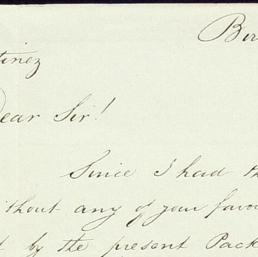 Bir
tinez
Dear Sir!
Since I had th
ithout any of your favou
by the present Pack